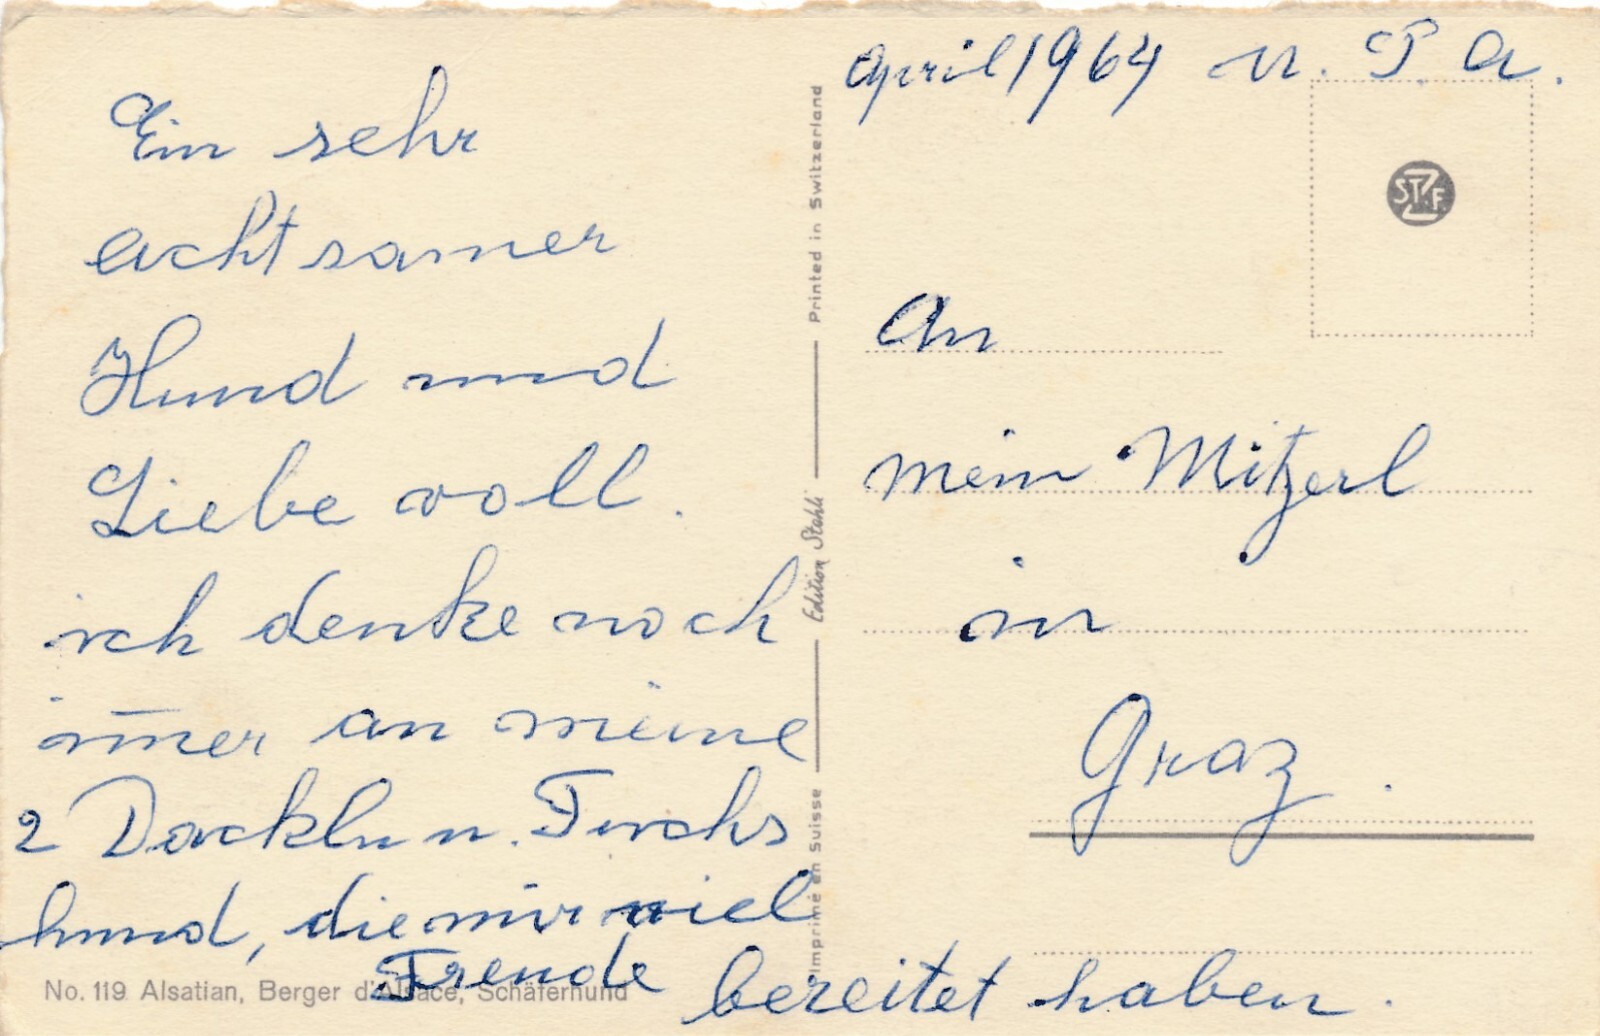 Ein sehr
achtsamer
Hund und
Liebe voll.
ich denke noch
im̄er an meine
2 Dackln u. Fuchs
hund, die mir viel
Freude bereitet haben.
No. 119 Alsatian, Berger d'Alsace, Schäferhund
Imprimé en Suisse
Edition Stehli
Printed in Switzerland
April 1964
STZF.
An
mein Mitzerl
in
Graz.